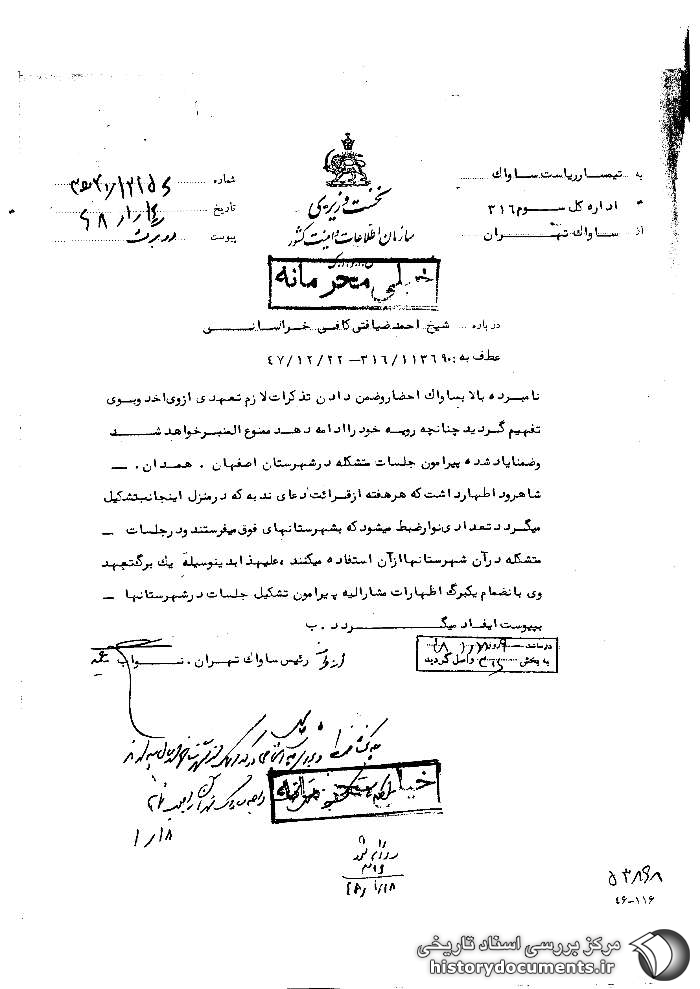 به تیمسار ریاست ساواک
اداره کل سوم ۳۱۶
از ساواک تهران
نخست وزیری
سازمان اطلاعات و امنیت کشور
شماره
تاریخ
پیوست دو برگ
خیلی محرمانه
درباره شیخ احمد ضیافتی کافی خراسانی
عطف به: ۳۱۶/۱۱۳۶۹۰-۴۷/۱۲/۲۲
نامبرده بالا بساواک احضار وضمن دادن تذکرات لازم تعهدی ازوی اخذ وبوی
تفهیم گردید چنانچه رویه خود را ادامه دهد ممنوع المنبر خواهد شد
وضمنا یاد شده پیرامون جلسات متشکله در شهرستان اصفهان . همدان . ـ
شاهرود اظهار داشت که هر هفته از قرائت دعای ندبه که در منزل اینجانب تشکیل
میگردد تعدادی نوار ضبط میشود که بشهرستانهای فوق میفرستند ودر جلسات ـ
متشکله در آن شهرستانها از آن استفاده میکنند ، علیهذا بدینوسیله یک برگ تعهد
وی بانضمام یکبرگ اظهارات مشارالیه پیرامون تشکیل جلسات در شهرستانها ـ
بپیوست ایفاد میگردد . ب
رئیس ساواک تهران . نواب
در ساعت ۹ روز
به بخش ۳۱۶ واصل گردید
خیلی محرمانه
۱/۱۸
۳۱۶
۴۸/۱/۱۸
۵۳۸۶۸
۴۶-۱۱۶
مرکز بررسی اسناد تاریخی
historydocuments.ir